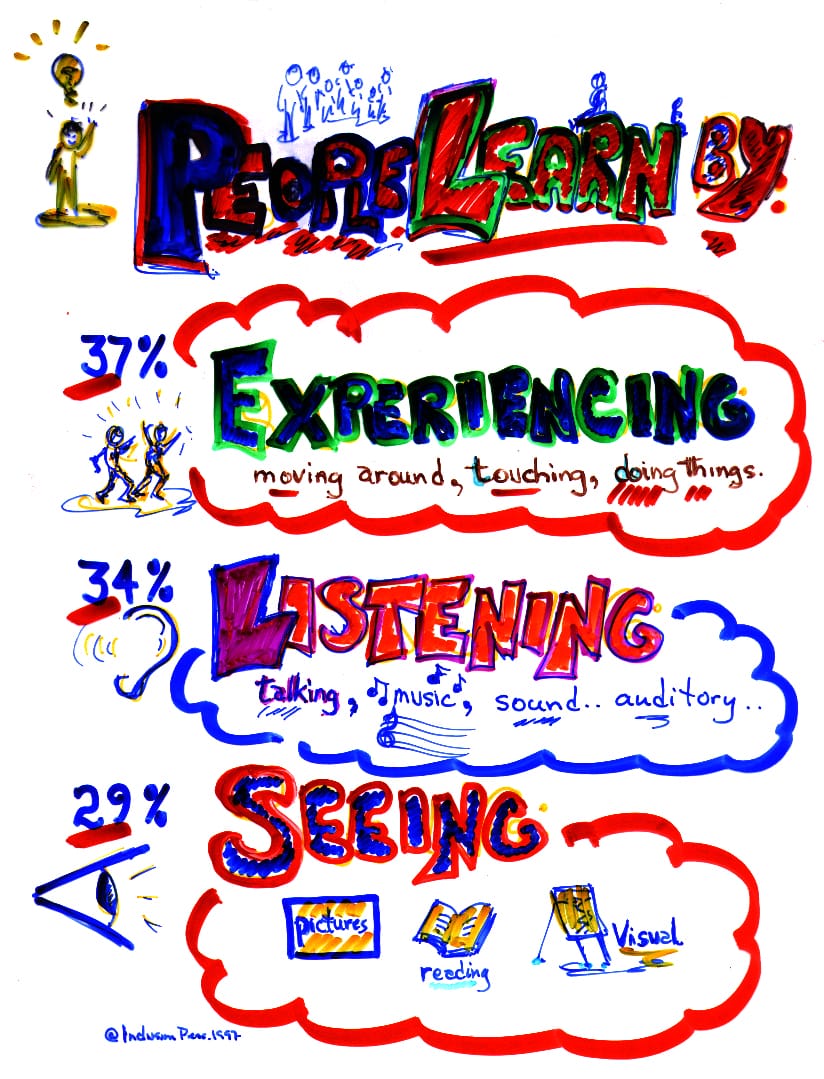 PEOPLE LEARN BY
37%
EXPERIENCING
moving around, touching, doing things.
34%
LISTENING
talking, music, sound.. auditory..
29%
SEEING
pictures
reading
Visual
@ Inclusion Press. 1997